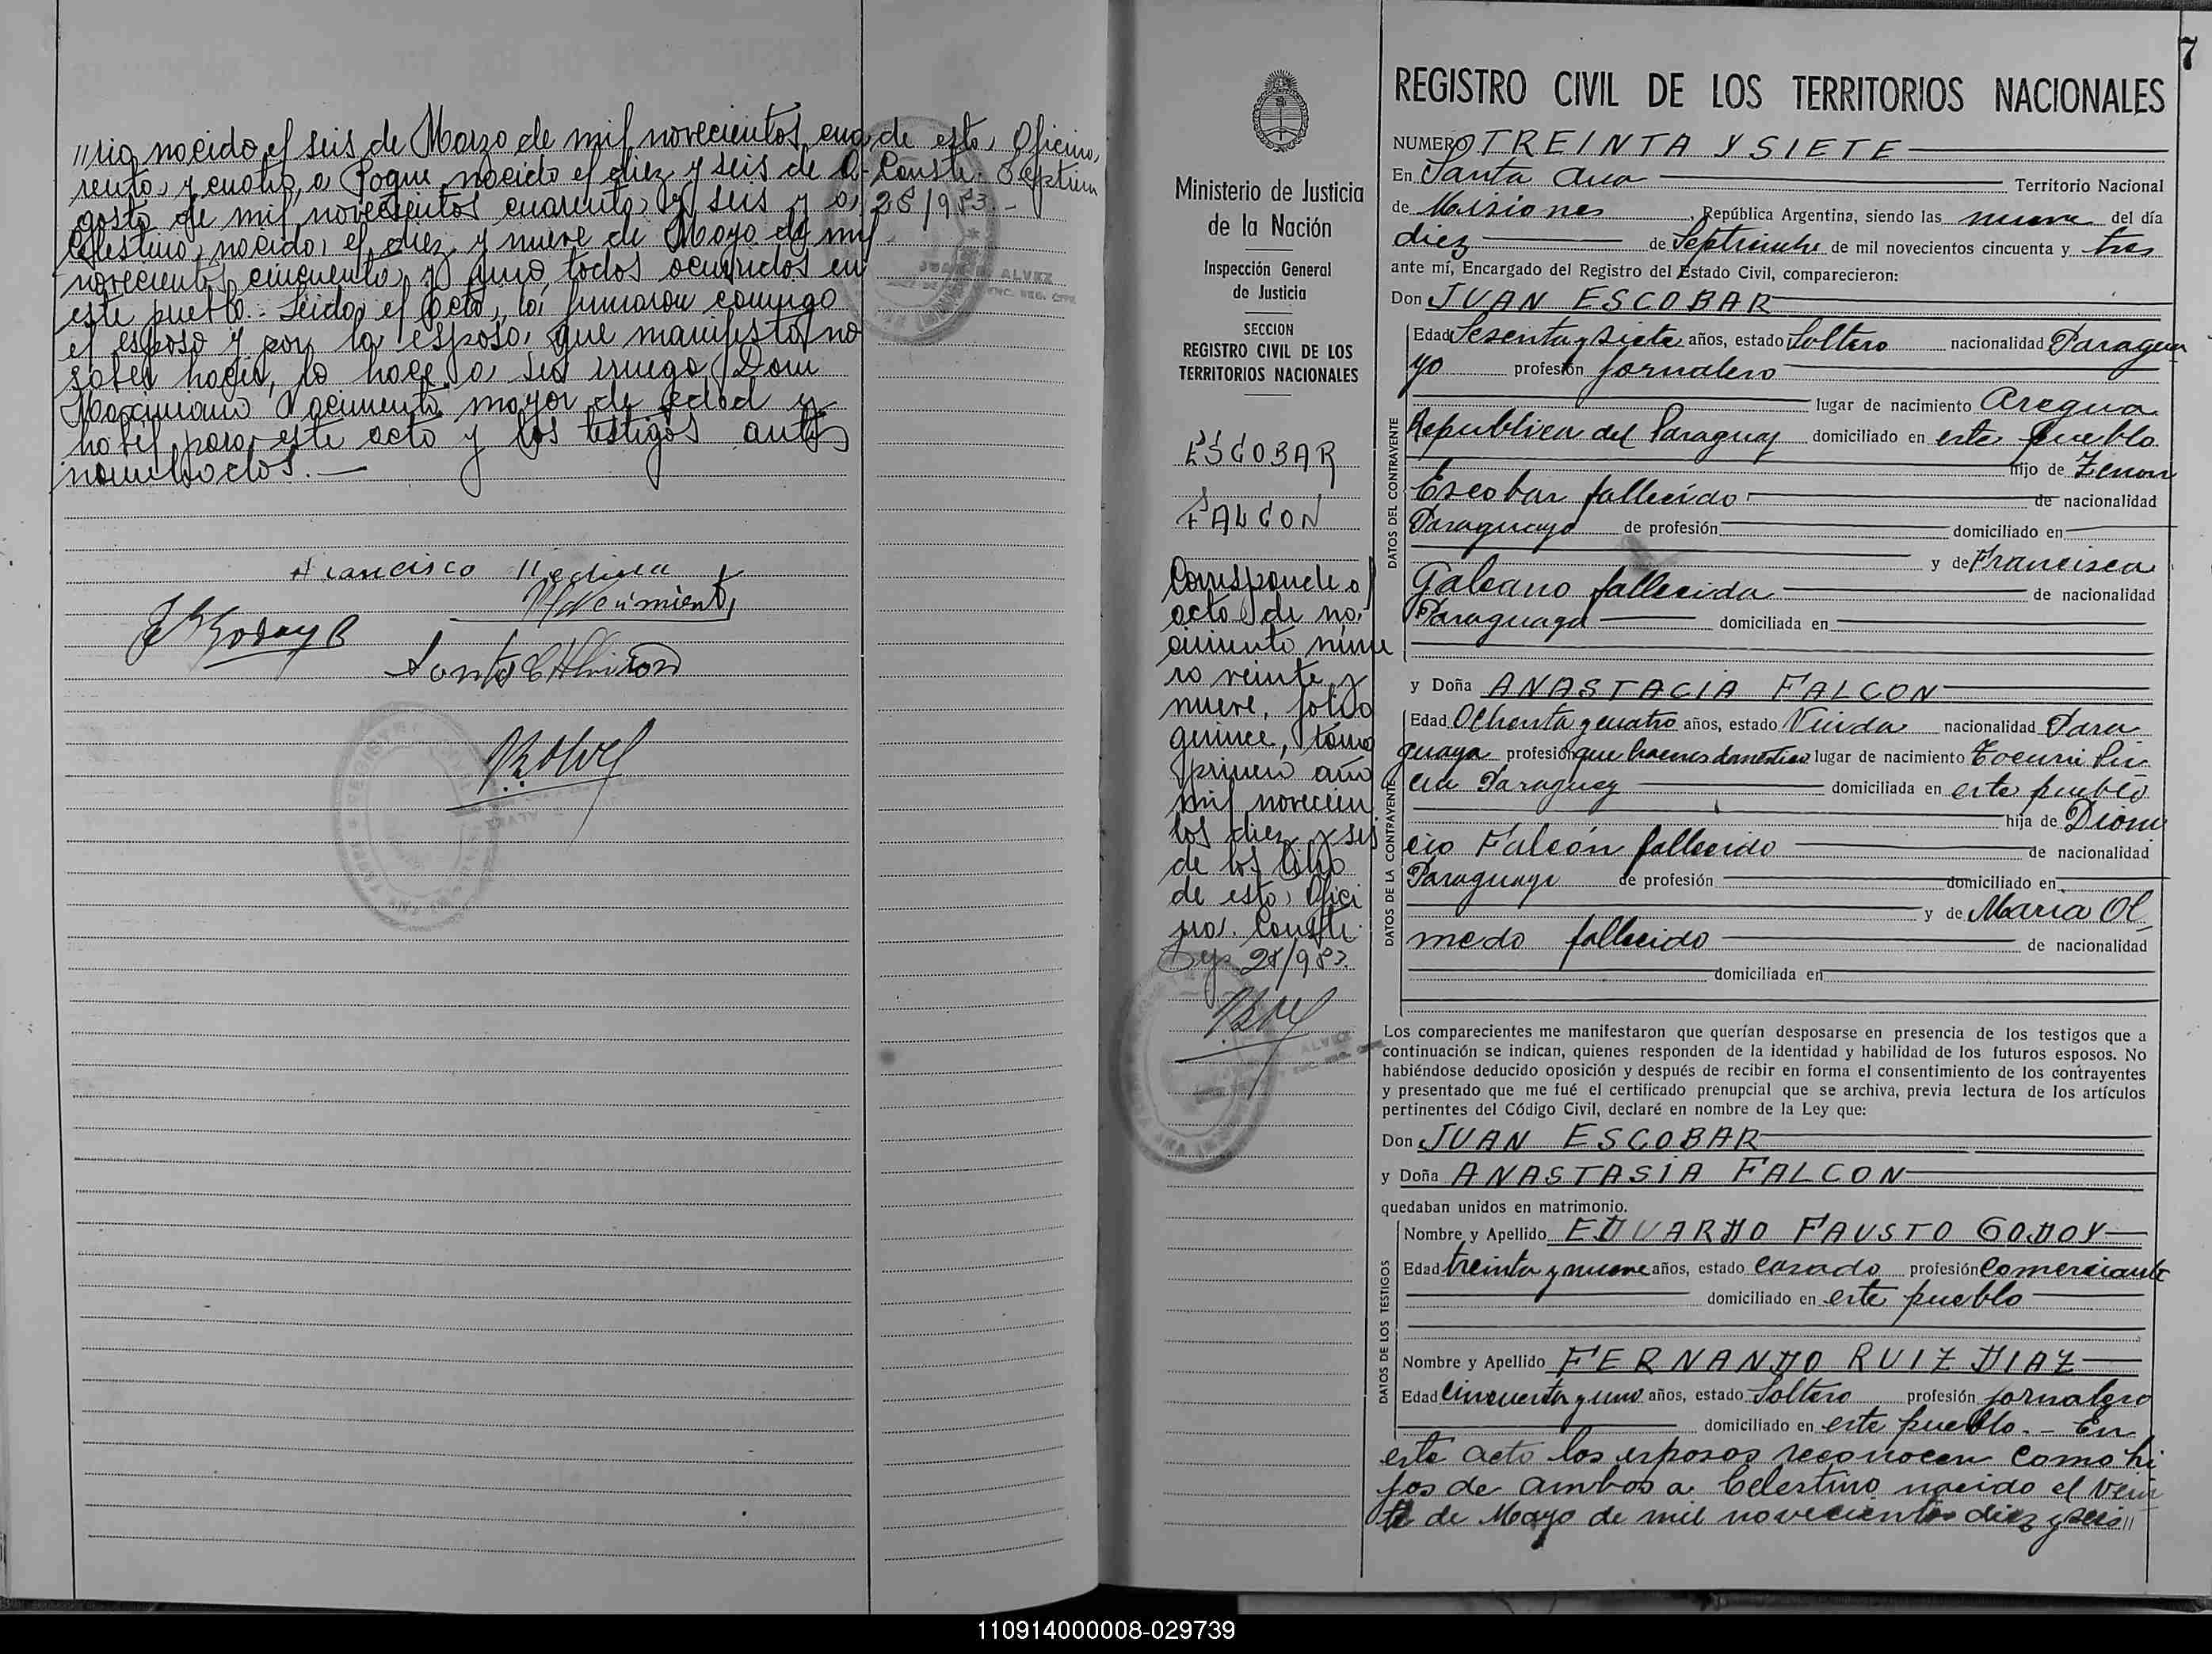 //ria nacido el seis de Marzo de mil novecientos cua
renta y cuatro, a Roque nacido el diez y seis de A-
gosto de mil novecientos cuarenta y seis y a
Celestino, nacido el diez y nueve de Mayo de mil
novecientos cincuenta y uno, todos ocurridos en
este pueblo.- Leida el acta, la firmaron conmigo
el esposo y por la esposa, que manifestó no
saber hacer, lo hace a su ruego Dom
Maximiano Nacimento mayor de edad y
habil para este acto y los testigos antes
nombrados.-
de esta Oficina,
Conste. Septiem
28/953.-
JUAN B. ALVEZ
Francisco Medina
M Nacimento
7
REGISTRO CIVIL DE LOS TERRITORIOS NACIONALES
Ministerio de Justicia
de la Nación
Inspección General
de Justicia
SECCION
REGISTRO CIVIL DE LOS
TERRITORIOS NACIONALES
ESCOBAR
FALCON
Corresponde al
acta de na-
cimiento núme
ro veinte y
nueve, folio
quince, tomo
primero año
mil novecien
tos diez y seis
de los libros
de esta Ofici
na. Conste.
Sep. 28/953.
ALVEZ
NUMERO TREINTA Y SIETE
En Santa Ana Territorio Nacional
de Misiones, República Argentina, siendo las nueve del día
diez de Septiembre de mil novecientos cincuenta y tres
ante mí, Encargado del Registro del Estado Civil, comparecieron:
Don JUAN ESCOBAR
DATOS DEL CONTRAYENTE
Edad Sesenta y siete años, estado Soltero nacionalidad Paragua
yo profesión jornalero
lugar de nacimiento Aregua
Republica del Paraguay domiciliado en este pueblo
hijo de Zenon
Escobar fallecido de nacionalidad
Paraguayo de profesión domiciliado en
y de Francisca
Galeano fallecida de nacionalidad
Paraguaya domiciliada en
y Doña ANASTACIA FALCON
DATOS DE LA CONTRAYENTE
Edad Ochenta y cuatro años, estado Viuda nacionalidad Para
guaya profesión que haceres domesticos lugar de nacimiento
Paraguay domiciliada en este pueblo
hija de Dioni
cio Falcón fallecido de nacionalidad
Paraguayo de profesión domiciliado en
y de Maria Ol-
medo fallecido de nacionalidad
domiciliada en
Los comparecientes me manifestaron que querían desposarse en presencia de los testigos que a
continuación se indican, quienes responden de la identidad y habilidad de los futuros esposos. No
habiéndose deducido oposición y después de recibir en forma el consentimiento de los contrayentes
y presentado que me fué el certificado prenupcial que se archiva, previa lectura de los artículos
pertinentes del Código Civil, declaré en nombre de la Ley que:
Don JUAN ESCOBAR
y Doña ANASTASIA FALCON
quedaban unidos en matrimonio.
DATOS DE LOS TESTIGOS
Nombre y Apellido EDUARDO FAUSTO GODOY
Edad treinta y nueve años, estado casado profesión Comerciante
domiciliado en este pueblo
Nombre y Apellido FERNANDO RUIZ DIAZ
Edad Cincuenta y uno años, estado Soltero profesión jornalero
domiciliado en este pueblo.- En
este acto los esposos reconocen como hi
jos de ambos a Celestino nacido el vein
te de Mayo de mil novecientos diez y seis//
110914000008-029739